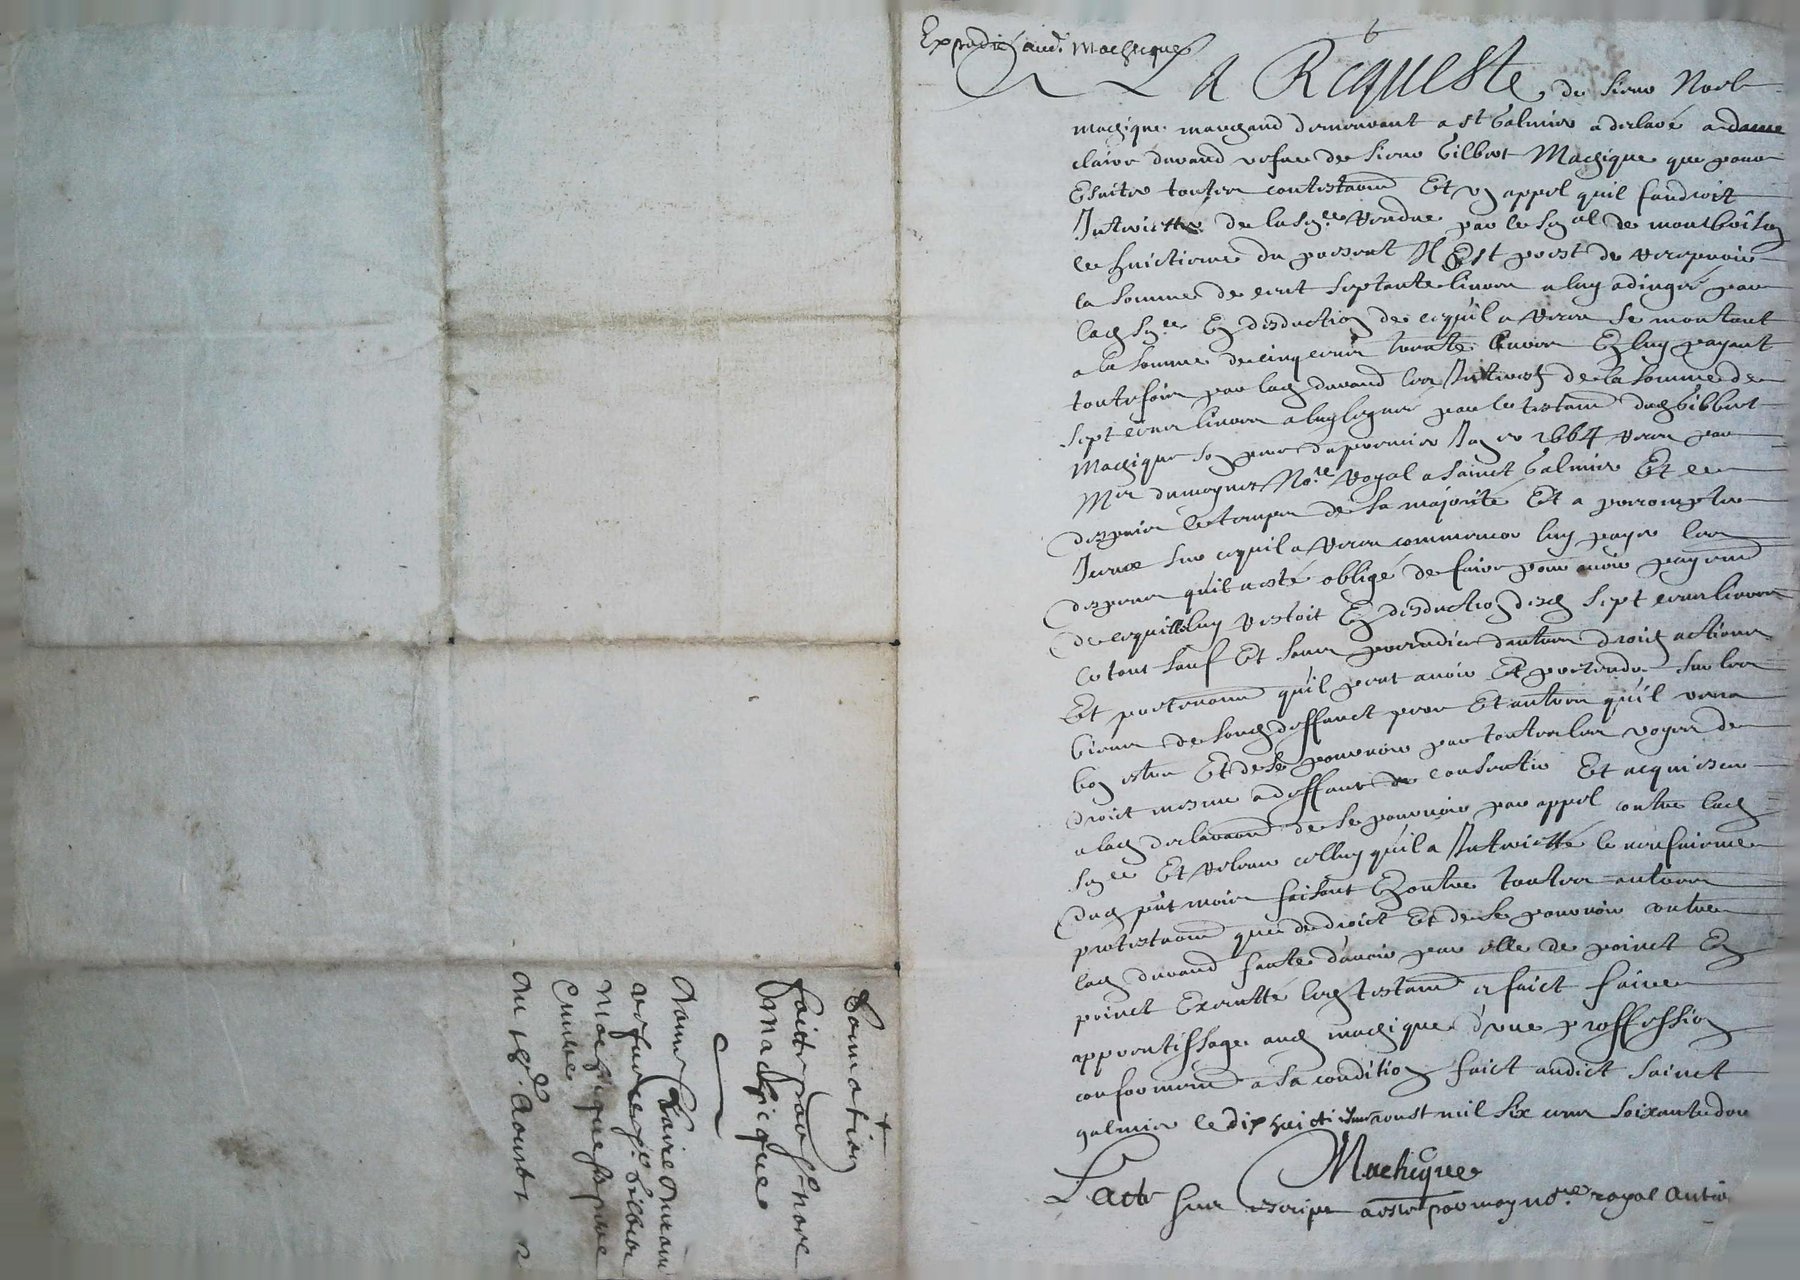 Expedié aud. Machicque
La Requeste, de sieur Noel
Machique marchand demeurant a St Galmier a declaré a dame
claire durand vefue de sieur Gilbert Machique que pour
Esuiter toutes contestaons Et un appel quil faudroit
Interietter de la snce rendue par le snal de montbrison
le huictiesme du present Il Est prest de recepuoir
la somme de cent septante liures a luy adiugés par
lad snce En deduction de cequil a receu se montant
a la somme de cinq cens trente liures En luy payant
toutesfois par lad durand les Interests de la somme de
sept cens liures a luy legués par le testamt dud Gilbert
Machique son pere du premier 1664 receu par
Me dumoynet Nore Royal a sainct Galmier Et ce
despuis le temps de sa majorité Et a
sur cequil a receu comme luy payer les
despens quil a esté obligé de faire pour auoir payemt
de cequil luy restoit En deduction desd sept cens liures
Le tout sauf Et sans preiudice dautres droits actions
Et pretentions quil peut auoir Et pretendre sur les
biens de sond deffunct pere Et autres quil verra
bon estre Et de se pouruoir par toutes les voyes de
droict mesme a deffaut de consentir Et acquiescer
a lad declaraon de se pouruoir par appel contre lad
snce Et releuer celluy quil a Interietté le neufuiesme
dud pnt mois faisant En outre toutes autres
protestaons que de droict Et de se pouruoir contre
lad durand faute dauoir par elle de poinct En
poinct Executté led testamt Et faict faire
apprentissage aud machique d'une proffession
conformemt a sa condition faict audict sainct
galmier le dix huictiesme aoust mil six cens soixante dou
Machique
Lacte sus escript a esté par moy nore royal
Sommation
faicte par sr Noel
Machicque
A
dame Claire durand
vefue de sr Gilbert
Machique sa mere
Du 18e Aoust